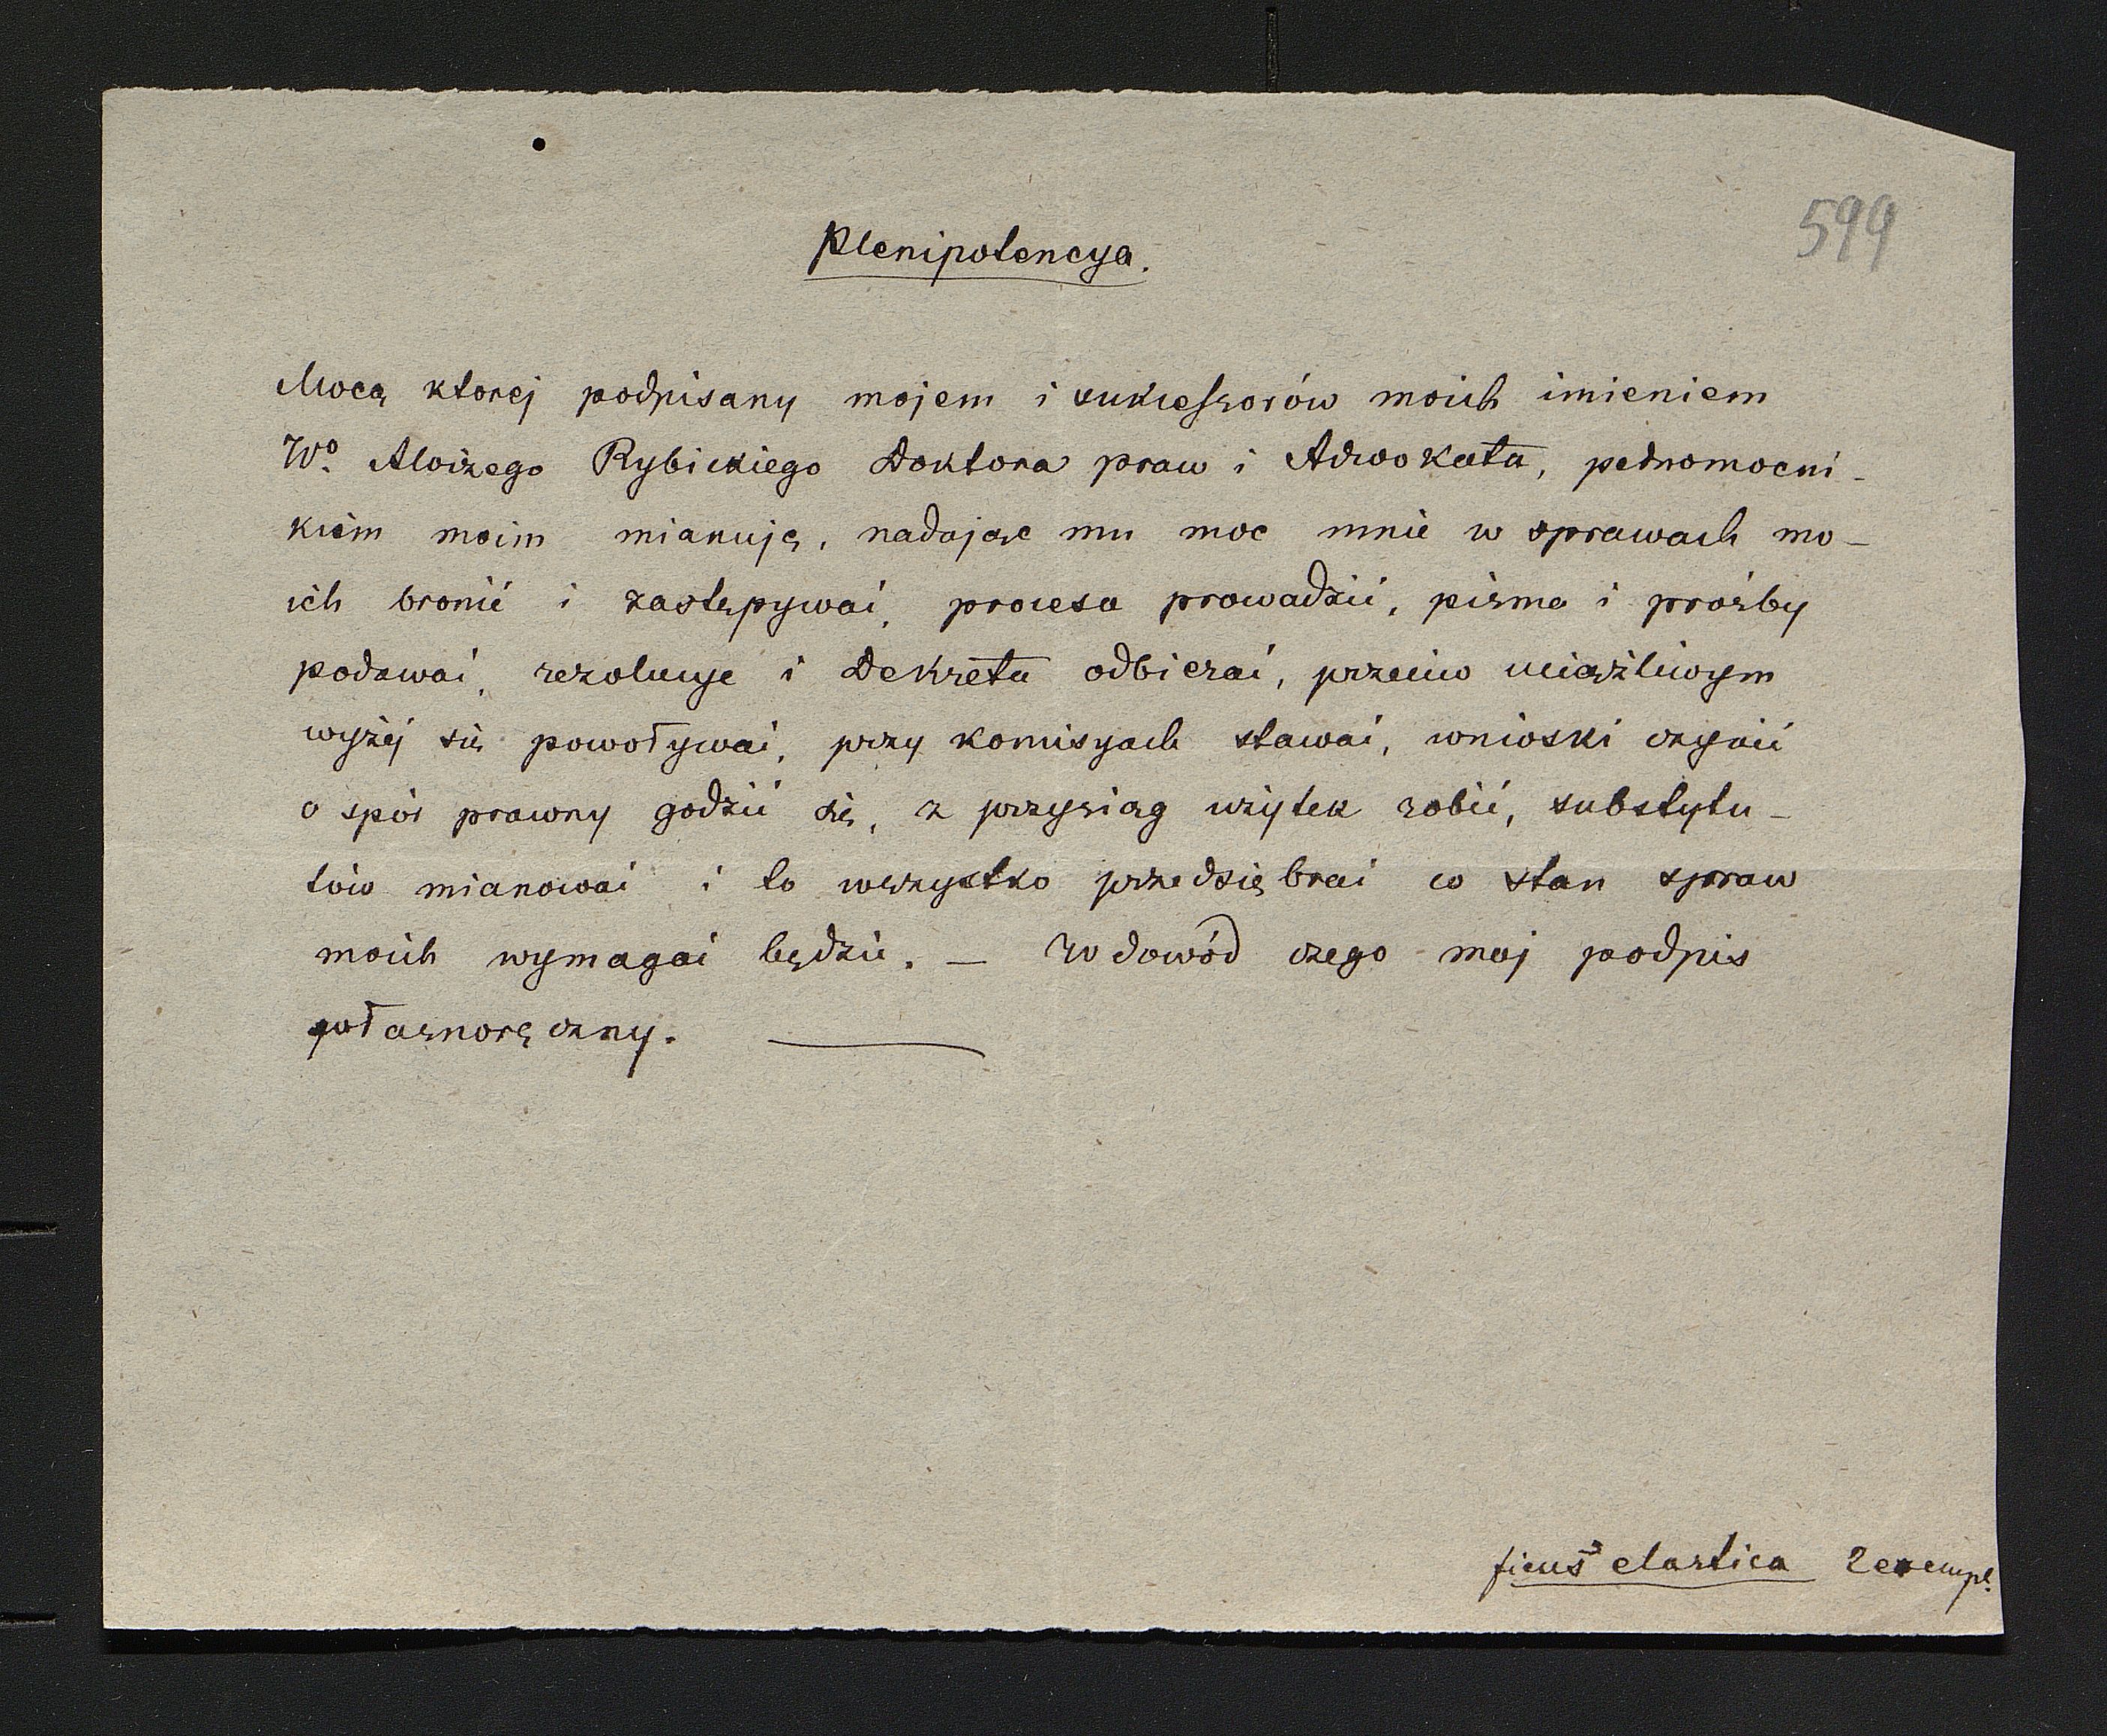 599
Plenipotencya.
Mocą ktorej podpisany mojem i sukcessorów moich imieniem
Wº. Aloizego Rybickiego Doktora praw i Adwokata, pełnomocni-
kiem moim mianuję, nadając mu moc mnie w sprawach mo-
ich bronić i zastępywać, procesa prowadzić, pisma i prośby
podawać, rezolucye i Dekreta odbierać, przeciw uciążliwym
wyżej się powoływać, przy komisyach stawać, wnioski czynić
o spór prawny godzić się, z przysiąg użytek robić, substytu-
tów mianować i to wszystko przedsiębrać co stan spraw
moich wymagać będzie. — W dowód czego moj podpis
własnoręczny. —
ficus elastica 2 exempl.